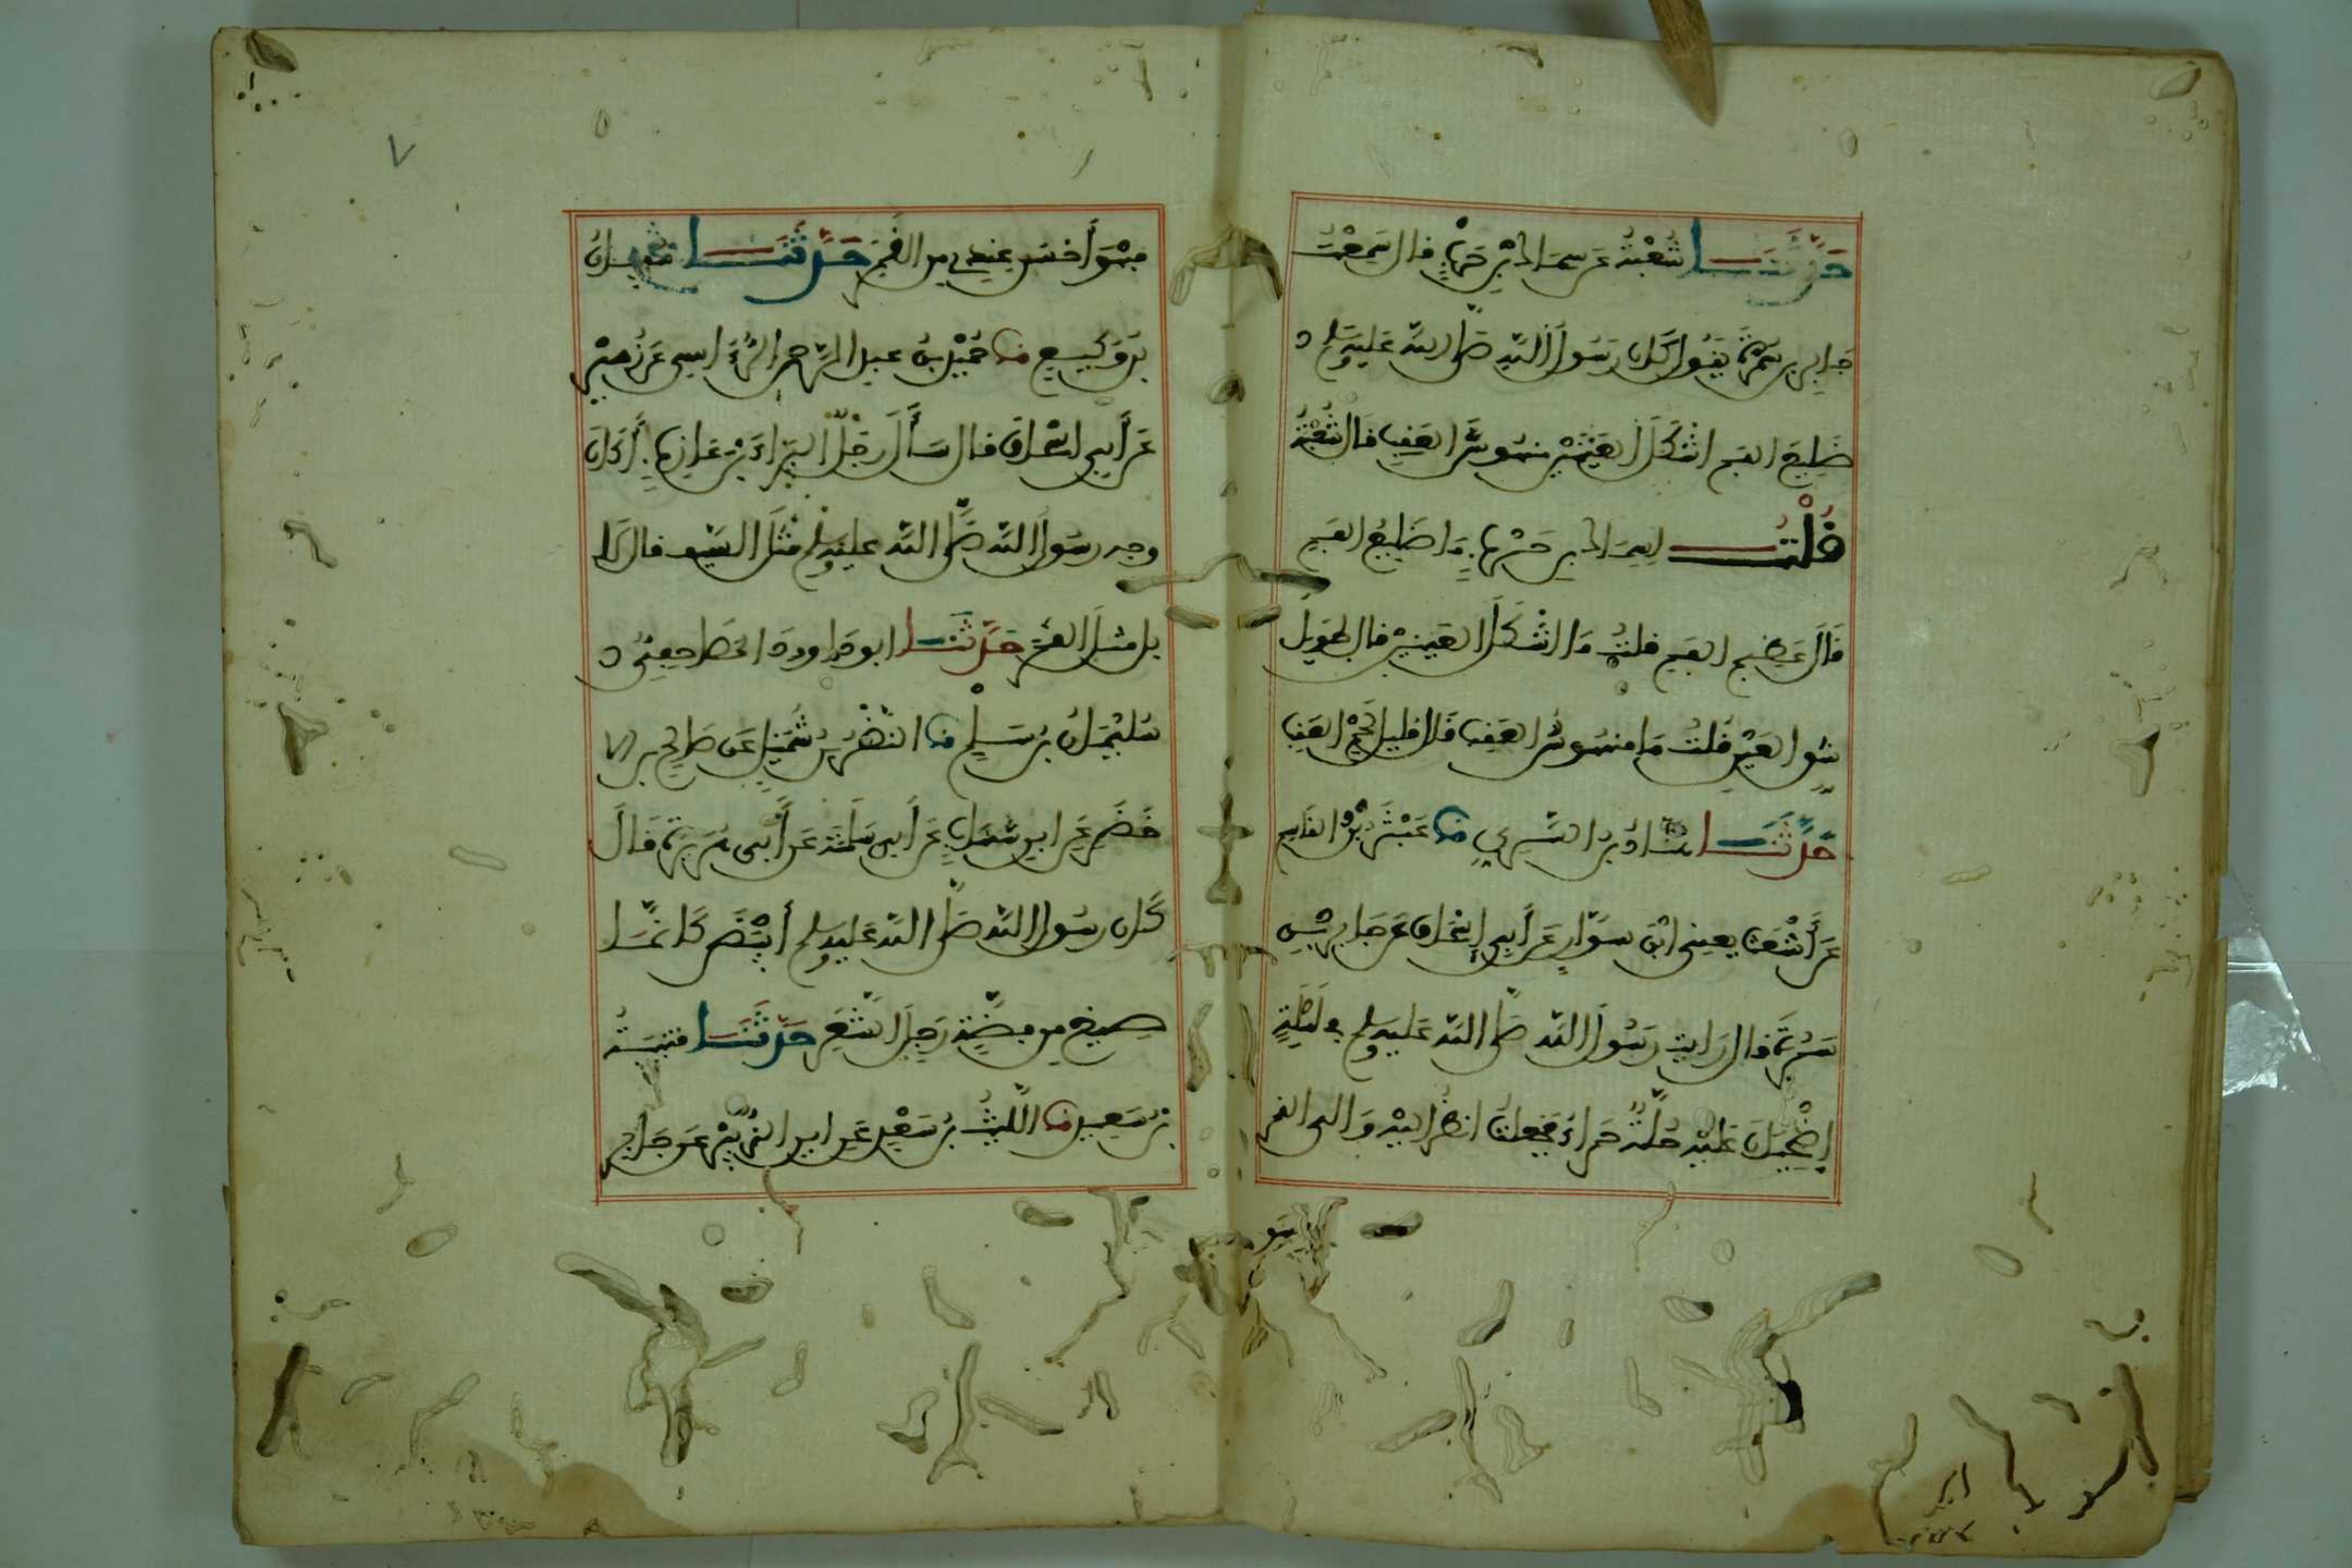 حَدَّثَنَا شُعْبَةُ عَن سِمَاكِ بْنِ حَرْبٍ فال سَمِعْتُ
جَابِر بن سَمُرَةَ يَفُولُ كَانَ رَسُولُ اللَّهِ صَلَّى اللَّهُ عَلَيْهِ وَسَلَّمَ
ضَلِيعَ الفمِ اشْكَلَ العَيْنَيْنِ منهُوسَ العَفِبِ فَال شُعْبَةُ
فُلْتُ لِسِمَاكِ بنِ حَرْبٍ مَا ضَلِيعُ الفَمِ
فَالَ عَظِيم الفَمِ فلتُ مَا اشْكَلُ العَيْنَيْنِ فال طَوِيل
شِوِ العَيْنِ فُلْتُ مَا منهُوسُ العَفِبِ فَالَ فلِيل لَحْمِ العَفِبِ
حَدَّثَنَا هنَّادُ بن السَّرِيِّ ثنا عَبْثَرُ بْنُ الفَاسِم
عَن أَشْعَثَ يعنِي ابْنَ سَوَّارٍ عَن أَبِي إِسْحَاق عَن جَابِر بْنِ
سَمُرَةَ فال رَايْت رَسُولَ اللَّهِ صَلَّى اللَّهُ عَلَيْهِ وَسَلَّمَ فِي لَيْلَةٍ
إِضْحِيَانَ عَلَيْهِ حُلَّةٌ حَمْرَاءُ فَجَعلتُ انظُرُ إليْهِ وَإلى الفمر
فهْوَ
فهُوَ أَحْسَن عِنْدِي مِنَ الفَمَرِ حَدَّثَنَا سُفيَانُ
بْنُ وَكِيعٍ ثنا حُمَيْدُ بنُ عبدِ الرَّحمنِ الرُّؤَاسِي عَن زُهَيْرٍ
عَن أَبِي اسْحَاق فال سَأَلَ رَجُلٌ البَرَاءَ بْنَ عَازِبٍ أَكَانَ
وجه رسُولِ اللَّهِ صَلَّى اللَّهُ عليْهِ وَسلم مثْلَ السَّيْفِ فال لَا
بل مثلَ الفمَر حَدَّثَنَا ابو داوود المَصَاحِفِيُّ
سُلَيْمَانُ بنُ سَلْمٍ ثنا النَّضْرُ بنُ شُمَيْلٍ عَن صَالِحِ بن ابي
الأخْضَرِ عَنِ ابنِ شِهَابٍ عَن أَبِي سَلَمَةَ عَن أَبِي هُرَيْرَةَ فَالَ
كَانَ رسُولُ اللَّهِ صَلَّى اللَّهُ عَليْهِ وَسلم أَبْيَضَ كَأَنَّمَا
صِيغَ مِن فِضَّةٍ رَجِلَ الشَّعَرِ حَدَّثَنَا فتَيْبَةُ
بْنُ سَعِيدٍ ثنا اللَّيْثُ بنُ سَعْدٍ عَن ابي الزُّبَيْرِ عَن جَابِر